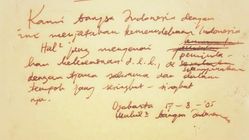 Kami bangsa Indonesia dengan
ini menjatakan kemerdekaan Indonesia.
Hal² jang mengenai
kekoeasaan d.l.l., di
dengan tjara saksama dan dalam
tempoh jang sesingkat-singkat
nja.
Djakarta 17 - 8 - 05
Wakil² bangsa Indonesia